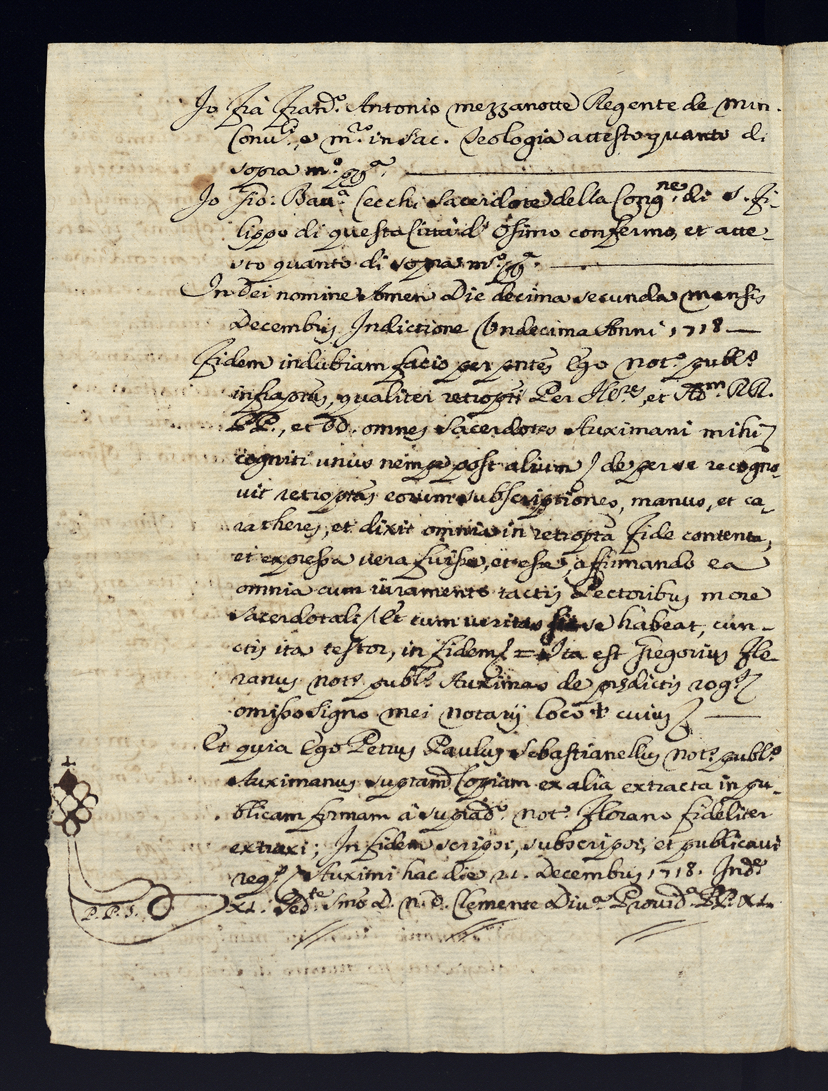 Io fra Franc.º Antonio Mezzanotte Regente de Min.
Conv.li, e m.ro in Sac. Teologia attesto quanto di
sopra m.º pp.a
Io Gio: Batt.a Cecchi Sacerdote della Cong.ne di S. Fi-
lippo di questa Città d' Osimo confermo, et atte-
sto quanto di sopra m.º pp.a
In Dei nomine Amen Die decima secunda mensis
Decembris Indictione Undecima Anni 1718
Fidem indubiam facio per pntes Ego Not.s publ.s
infraptus, qualiter retropti Per Ill.res, et Adm. RR.
PP., et DD. omnes Sacerdotes Auximani mihi
cogniti unus nempe post alium de per se recogno-
vit retroptas eorum subscriptiones, manus, et ca-
ratheres, et dixit omnia in retropta fide contenta,
et expressa vera fuisse, et esse, affirmando ea
omnia cum iuramento tactis Pectoribus more
Sacerdotali Et cum veritas sit se habeat, cun-
ctis ita testor, in fidem = Ita est Gregorius Flo-
ranus not.s publ.s Auximas de pdictis rog.
omisso signo mei Notarij loco + cuius
Et quia Ego Petrus Paulus Sebastianellius Not.s publ.s
Auximanus suprad. Copiam ex alia extracta in pu-
blicam formam à suprad.º not.º Florano fideliter
extraxi; In fidem scripsi, subscripsi, et publicavi
reg. Auximi hac die 21. Decembris 1718. Ind.e
XI. Sed.te Smo D. N. D. Clemente Div.a Provid.a PP. XI.
P. P. S.